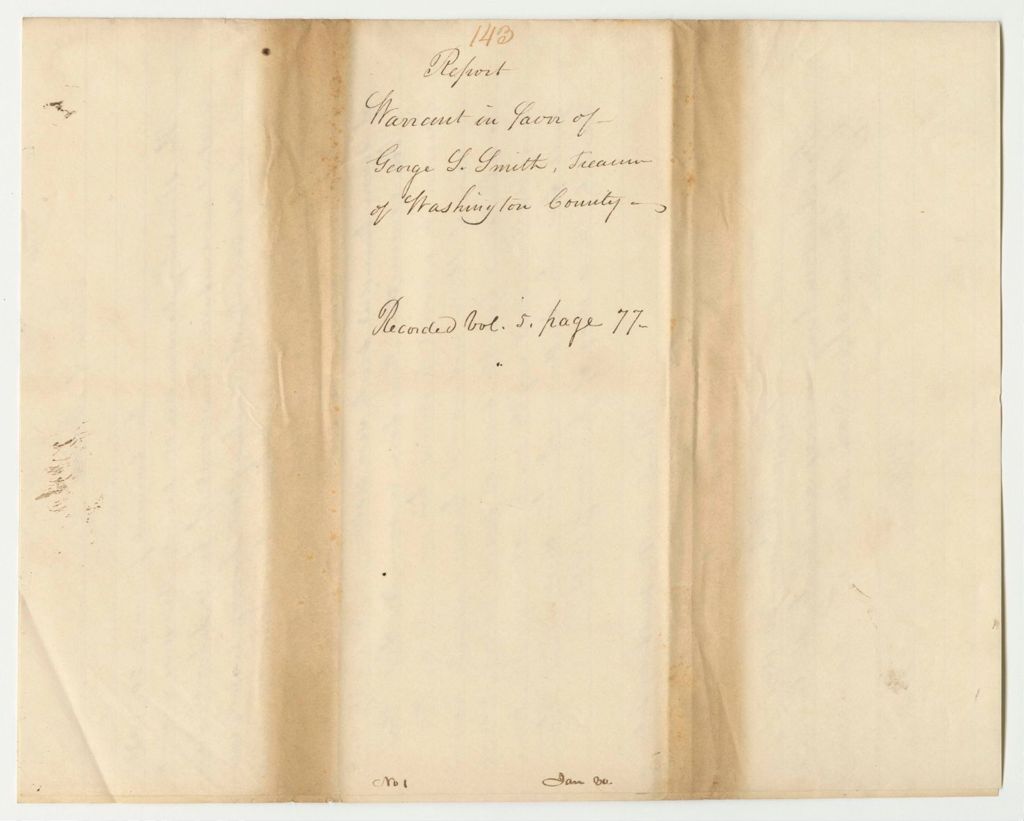 143
Report
Warrant in favor of
George S. Smith, Treasurer
of Washington County
Recorded Vol. 5. page 77
No 1
Jan 30.